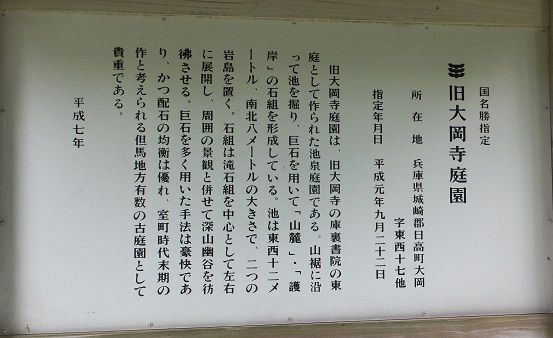 国名勝指定
旧大岡寺庭園
所在地 兵庫県城崎郡日高町大岡
字東西十七他
指定年月日 平成元年九月二十二日
旧大岡寺庭園は、旧大岡寺の庫裏書院の東
庭として作られた池泉庭園である。山裾に沿
って池を掘り、巨石を用いて「山麓」・「護
岸」の石組を形成している。池は東西十二メ
ートル、南北八メートルの大きさで、二つの
岩島を置く。石組は滝石組を中心として左右
に展開し、周囲の景観と併せて深山幽谷を彷
彿させる。巨石を多く用いた手法は豪快であ
り、かつ配石の均衡は優れ、室町時代末期の
作と考えられる但馬地方有数の古庭園として
貴重である。
平成七年